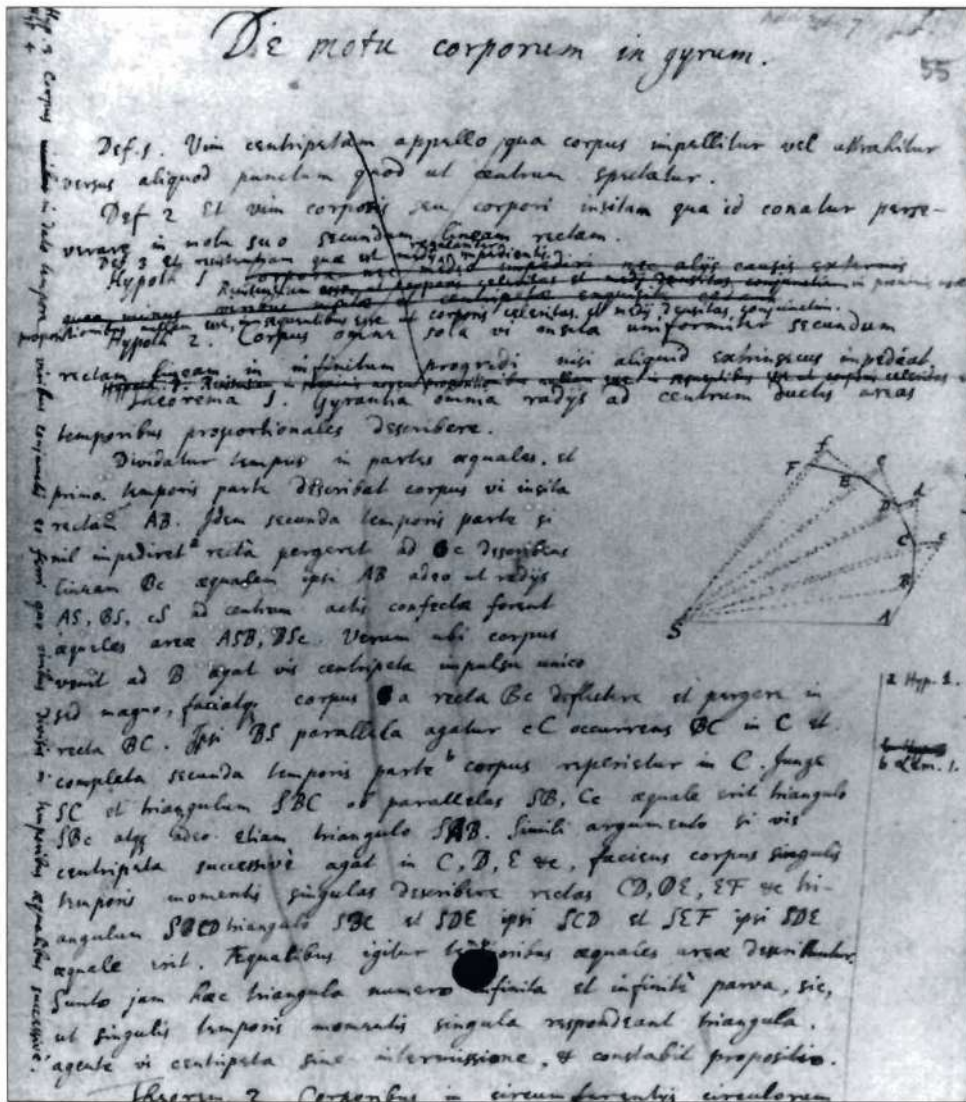 De motu corporum in gyrum.
55
Def. 1. Vim centripetam appello qua corpus impellitur vel attrahitur
versus aliquod punctum quod ut centrum spectatur.
Def 2 Et vim corporis seu corpori insitam qua id conatur perse-
verare in motu suo secundum lineam rectam.
Def 3 Et resistentiam quæ est medij regulariter impedientis.
Hypoth 1 corpora nec medio impediri nec alijs causis externis
Resistentiam in proximis novem
quo minus viribus insitæ et centripetæ exquisite cedant
proportionibus nullam esse, in sequentibus esse ut corporis celeritas et medij densitas conjunctim.
Hypoth 2. Corpus omne sola vi insita uniformiter secundum
rectam lineam in infinitum progredi nisi aliquid extrinsecus impediat.
Theorema 1. Gyrantia omnia radijs ad centrum ductis areas
temporibus proportionales describere.
Dividatur tempus in partes æquales, et
prima temporis parte describat corpus vi insita
rectam AB. Idem secunda temporis parte si
nil impediret a recta pergeret ad c describens
lineam Bc æqualem ipsi AB adeo ut radijs
AS, BS, cS ad centrum actis confectæ forent
æquales areæ ASB, BSc. Verum ubi corpus
venit ad B agat vis centripeta impulsu unico
sed magno, faciatqz corpus a recta Bc deflectere et pergere in
recta BC. Ipsi BS parallela agatur cC occurrens BC in C et
completa secunda temporis parte b corpus reperietur in C. Junge
SC et triangulum SBC ob parallelas SB, Cc æquale erit triangulo
SBc atqz adeo etiam triangulo SAB. Simili argumento si vis
centripeta successivè agat in C, D, E &c, faciens corpus singulis
temporis momentis singulas describere rectas CD, DE, EF &c tri-
angulum SCD triangulo SBC et SDE ipsi SCD et SEF ipsi SDE
æquale erit. Æqualibus igitur temporibus æquales areæ describuntur.
Sunto jam hæc triangula numero infinita et infinitè parva, sic,
ut singulis temporis momentis singula respondeant triangula,
agente vi centripeta sine intermissione, & constabit propositio.
Theorem 2 Corporibus in circumferentijs circulorum
f
F
e
E
d
D
c
C
B
A
S
a Hyp. 2.
b Lem. 1.
Hyp 3 Corpus in dato tempore viribus conjunctis eo ferri quo viribus divisis temporibus æqualibus successivè.
Hyp 4